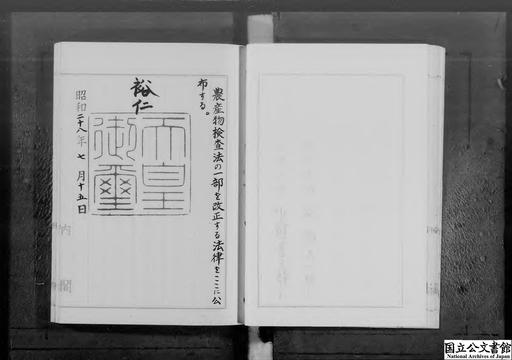 農産物検査法の一部を改正する法律をここに公
布する。
裕仁
天皇
御璽
昭和二十八年七月十五日
内閣
国立公文書館
National Archives of Japan